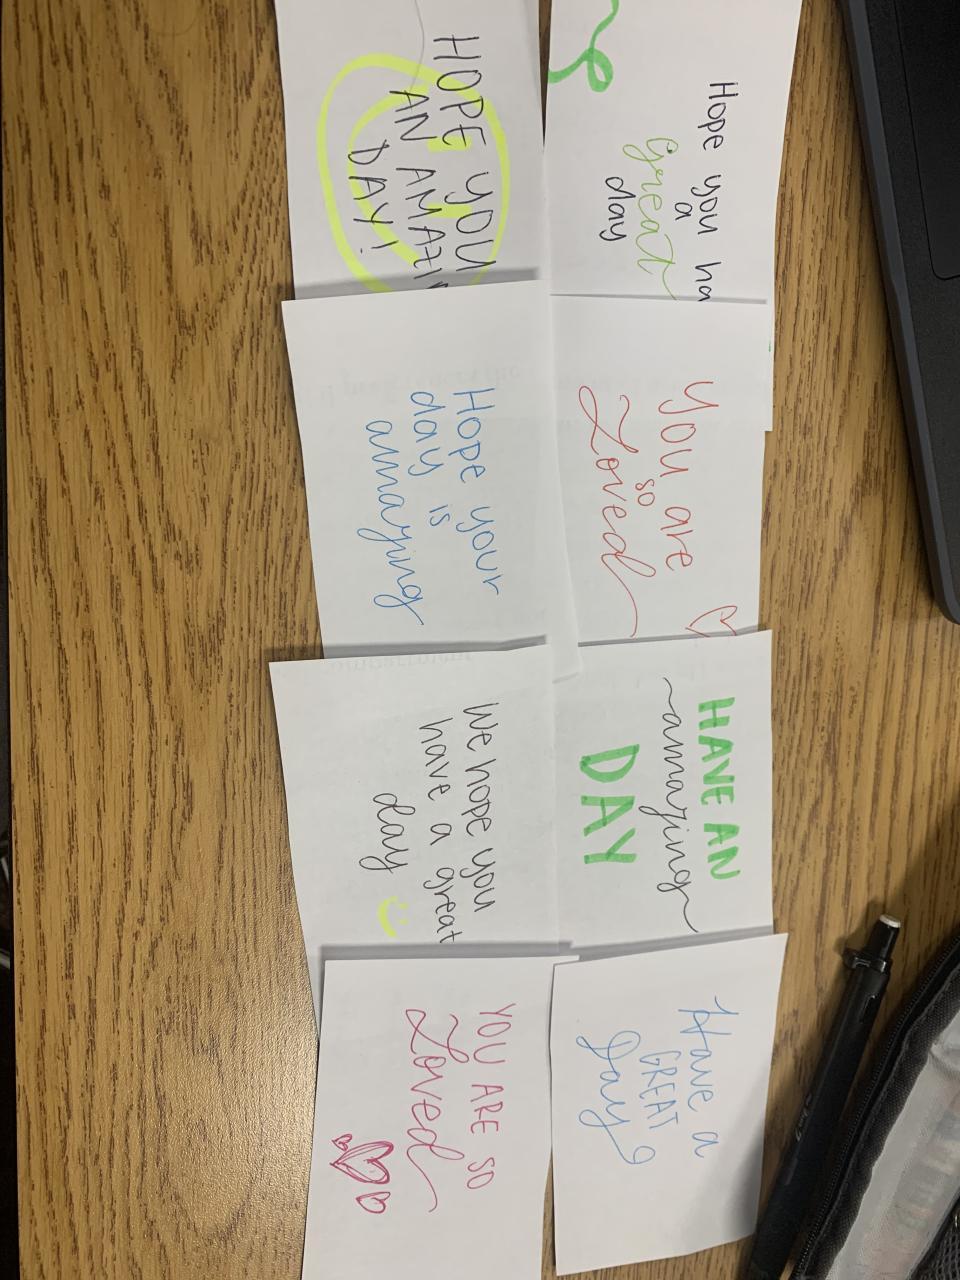 Hope you ha
a
great
day
You are
so
Loved
HAVE AN
amazing
DAY
Have a
GREAT
Day
HOPE YOU
AN AMAZI
DAY!
Hope your
day is
amazing
We hope you
have a great
day
YOU ARE SO
Loved